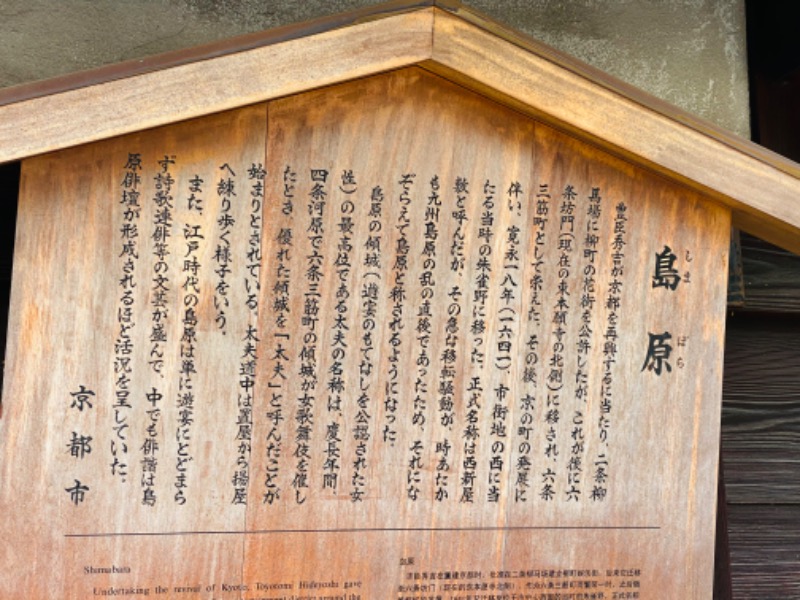 島原
しまばら
豊臣秀吉が京都を再興するに当たり、二条柳
馬場に柳町の花街を公許したが、これが後に六
条坊門(現在の東本願寺の北側)に移され、六条
三筋町として栄えた。その後、京の町の発展に
伴い、寛永一八年(一六四一)、市街地の西に当
たる当時の朱雀野に移った。正式名称は西新屋
敷と呼んだが、その急な移転騒動が、時あたか
も九州島原の乱の直後であったため、それにな
ぞらえて島原と称されるようになった。
島原の傾城(遊宴のもてなしを公認された女
性)の最高位である太夫の名称は、慶長年間、
四条河原で六条三筋町の傾城が女歌舞伎を催し
たとき、優れた傾城を「太夫」と呼んだことが
始まりとされている。太夫道中は置屋から揚屋
へ練り歩く様子をいう。
また、江戸時代の島原は単に遊宴にとどまら
ず詩歌連俳等の文芸が盛んで、中でも俳諧は島
原俳壇が形成されるほど活況を呈していた。
京都市
Shimabara
Undertaking the revival of Kyoto, Toyotomi Hideyoshi gave